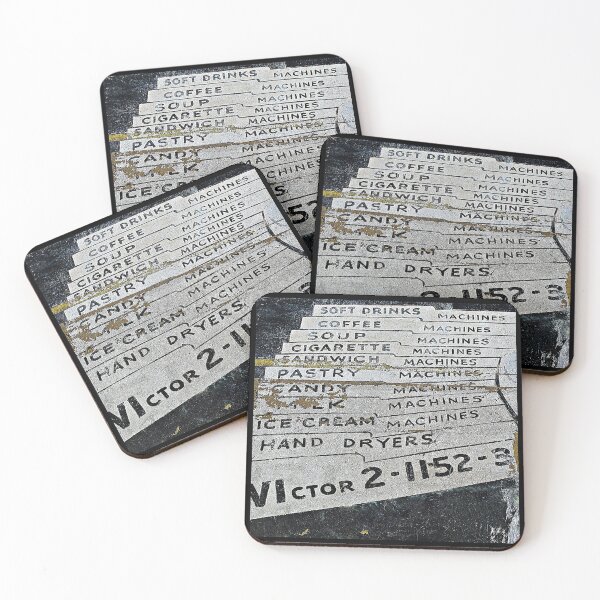 SOFT DRINKS MACHINES
COFFEE MACHINES
SOUP MACHINES
CIGARETTE MACHINES
SANDWICH MACHINES
PASTRY MACHINES
CANDY
ICE CR
SOFT DRINKS MACHINES
COFFEE MACHINES
SOUP MACHINES
CIGARETTE MACHINES
SANDWICH MACHINES
PASTRY MACHINES
CANDY MACHINES
MACHINES
ICE CREAM MACHINES
HAND DRYERS
2-1152-3
SOFT DRINKS MACHINES
COFFEE MACHINES
SOUP MACHINES
CIGARETTE MACHINES
SANDWICH MACHINES
PASTRY MACHINES
CANDY MACHINES
MACHINES
ICE CREAM MACHINES
HAND DRYERS
VICTOR 2-11
SOFT DRINKS MACHINES
COFFEE MACHINES
SOUP MACHINES
CIGARETTE MACHINES
SANDWICH MACHINES
PASTRY MACHINES
CANDY MACHINES
MACHINES
ICE CREAM MACHINES
HAND DRYERS
VICTOR 2-1152-3